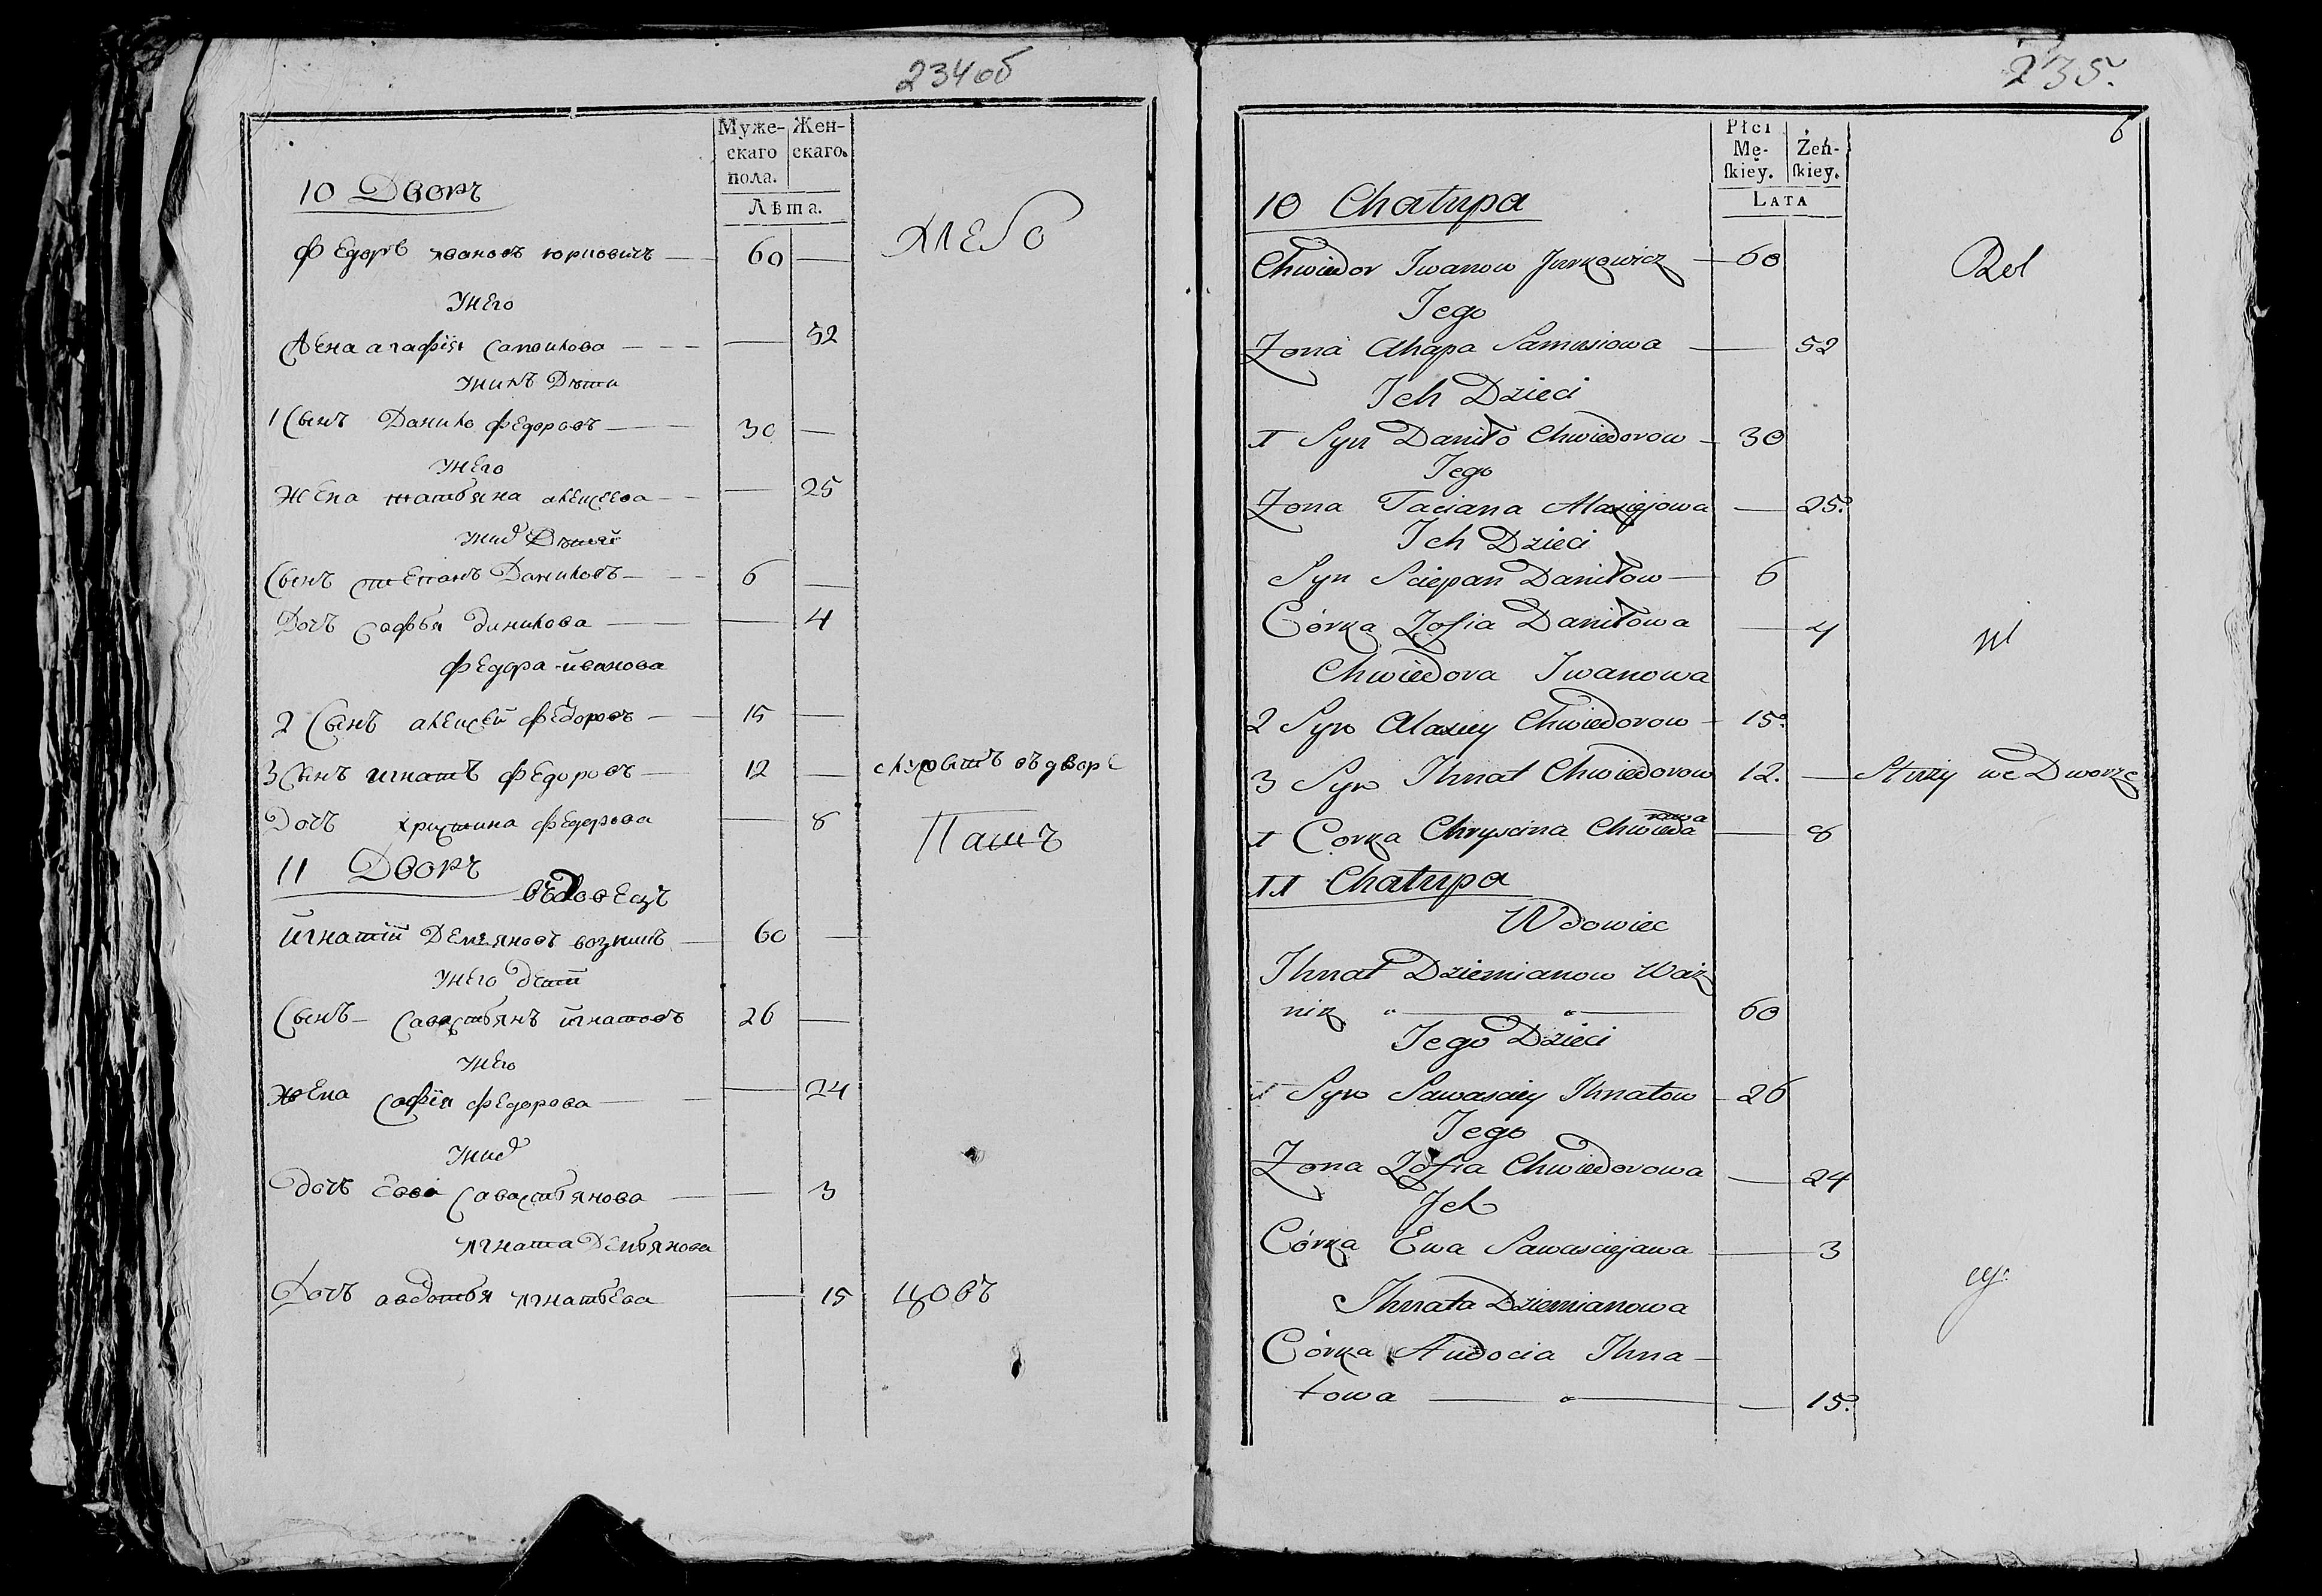 234об
Муже-
скаго
пола.
Жен-
скаго.
Лѣта.
10 Дворъ
Федоръ Ивановъ Юрковичъ — 60 —
Унего
Жена Агафія Самойлова — — 52
Унихъ Дѣти
1 Сынъ Данило Федоровъ — 30 —
Унего
Жена Татьяна Алексеева — — 25
Сынъ Степанъ Даниловъ — 6 —
Дочь Софья Данилова — — 4
Федора Иванова
2 Сынъ Алексей Федоровъ — 15 —
3 Сынъ Игнатъ Федоровъ — 12 — служитъ въ дворе
Дочь Христина Федорова — 8
ХЛЕБО
Пашъ
11 Дворъ
Въдовецъ
Игнатій Демьяновъ — 60 —
Унего дети
Сынъ Савастьянъ Игнатовъ 26 —
Унего
Жена Софія Федорова — — 24
Дочь Евва Савастьянова — — 3
Игната Демьянова
Дочь Авдотья Игнатьева — 15 цовъ
235.
6
Płci
Mę-
skiey.
Żeń-
skiey.
LATA
10 Chałupa
Chwiedor Iwanow Jurkowicz — 60
Jego
Zona Ahapa Samusiowa — 52
Ich Dzieci
1 Syn Daniło Chwiedorow — 30
Jego
Zona Taciana Alaxiejowa — 25.
Ich Dzieci
Syn Sciepan Daniłow — 6
Córka Zofia Daniłowa — 4
Chwiedora Iwanowa
2 Syn Alaxiey Chwiedorow — 15.
3 Syn Ihnat Chwiedorow 12. — Służy we Dworze
1 Corka Chryscina Chwieda rowa — 8
Rol
ni
cy.
11 Chałupa
Wdowiec
Ihnat Dziemianow Waź
nik — 60
Jego Dzieci
1 Syn Sawasciey Ihnatow — 26
Jego
Zona Zofia Chwiedorowa — 24
Ich
Córka Ewa Sawasciejawa — 3
Ihnata Dziemianowa
Córka Audocia Ihna —
towa — — 15.